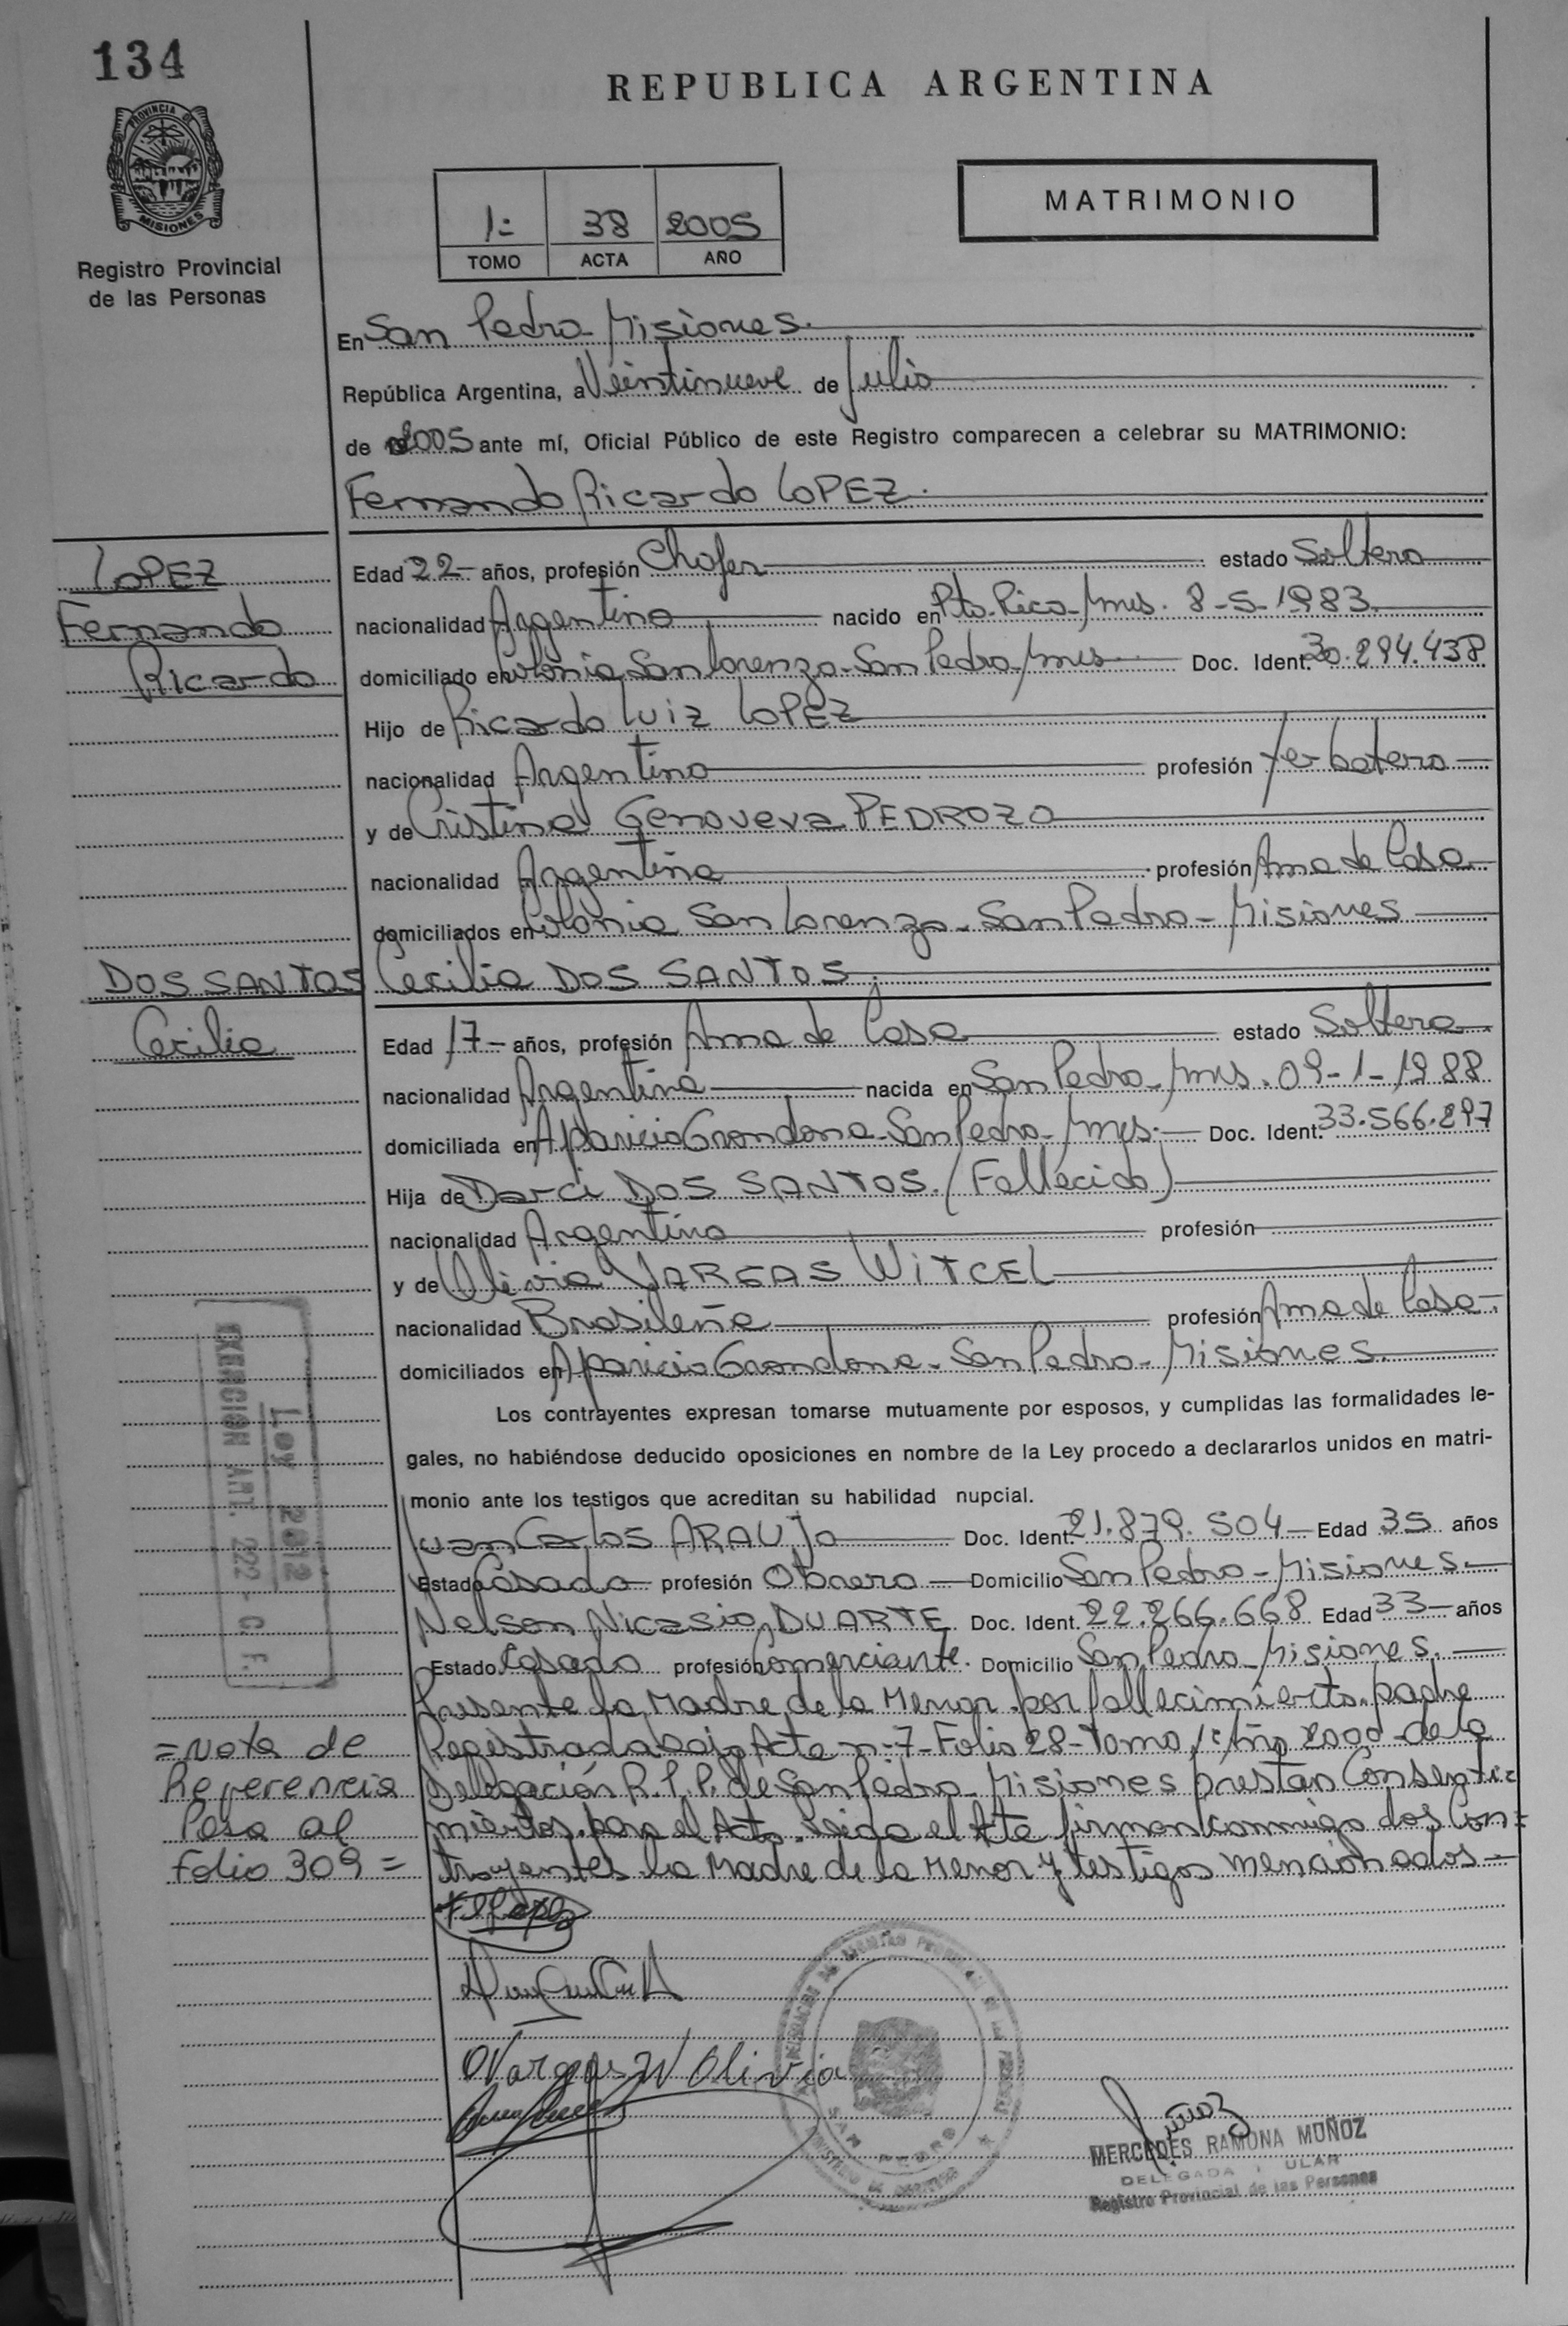 134
REPUBLICA ARGENTINA
PROVINCIA DE
MISIONES
Registro Provincial
de las Personas
1º 38 2005
TOMO ACTA AÑO
MATRIMONIO
En San Pedro - Misiones.
República Argentina, a Veintinueve de Julio
de 2005 ante mí, Oficial Público de este Registro comparecen a celebrar su MATRIMONIO:
Fernando Ricardo LOPEZ.
LOPEZ
Fernando
Ricardo
Edad 22 - años, profesión Chofer estado Soltero
nacionalidad Argentino nacido en Pto. Rico - Mnes. 8-5-1983
domiciliado en Colonia San Lorenzo - San Pedro - Mnes. Doc. Ident. 30.294.438
Hijo de Ricardo Luiz LOPEZ
nacionalidad Argentino profesión Yerbatero
y de Cristina Genoveva PEDROZO
nacionalidad Argentina profesión Ama de Casa
domiciliados en Colonia San Lorenzo - San Pedro - Misiones
DOS SANTOS
Cecilia
Cecilia DOS SANTOS.
Edad 17 - años, profesión Ama de Casa estado Soltera
nacionalidad Argentina nacida en San Pedro - Mnes. 09-1-1988
domiciliada en Aparicio Grondona - San Pedro - Mnes. Doc. Ident. 33.566.297
Hija de Darci DOS SANTOS. (Fallecido)
nacionalidad Argentino profesión
y de Olivia VARGAS WITCEL
nacionalidad Brasileña profesión Ama de Casa
domiciliados en Aparicio Grondona - San Pedro - Misiones.
Los contrayentes expresan tomarse mutuamente por esposos, y cumplidas las formalidades le-
gales, no habiéndose deducido oposiciones en nombre de la Ley procedo a declararlos unidos en matri-
monio ante los testigos que acreditan su habilidad nupcial.
Ley 2812
EXENCION ART. 222 - C. F.
Juan Carlos ARAUJO Doc. Ident. 21.879.504 Edad 35 años
Estado Casado profesión Obrero Domicilio San Pedro - Misiones.
Nelson Nicasio DUARTE Doc. Ident. 22.266.668 Edad 33 - años
Estado Casado profesión Comerciante. Domicilio San Pedro - Misiones.
Presente la Madre de la Menor por fallecimiento padre
Registrada bajo Acta nº 7 - Folio 28 - Tomo 1º Año 2000 - de la
Delegación R.P.P. de San Pedro - Misiones prestan Consenti=
mientos para el Acto. Leida el Acta firman conmigo dos Con=
trayentes la Madre de la Menor y testigos mencionados -
= Nota de
Referencia
Pasa al
Folio 309 =
O Vargas W Olivia
SAN PEDRO
Muñoz
MERCEDES RAMONA MUÑOZ
DELEGADA TITULAR
Registro Provincial de las Personas